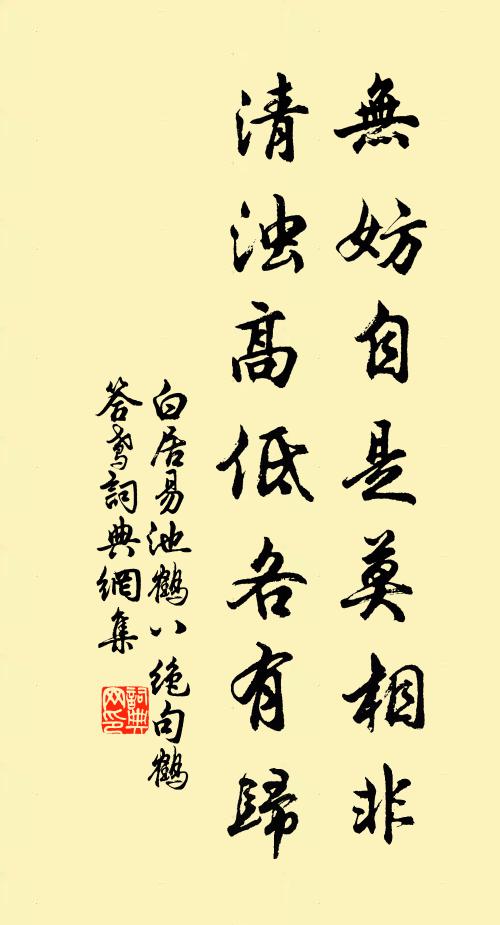 無妨自是莫相非
清浊高低各有歸
白居易池鶴八绝句鶴
答鸢詞典網集
詞典网印